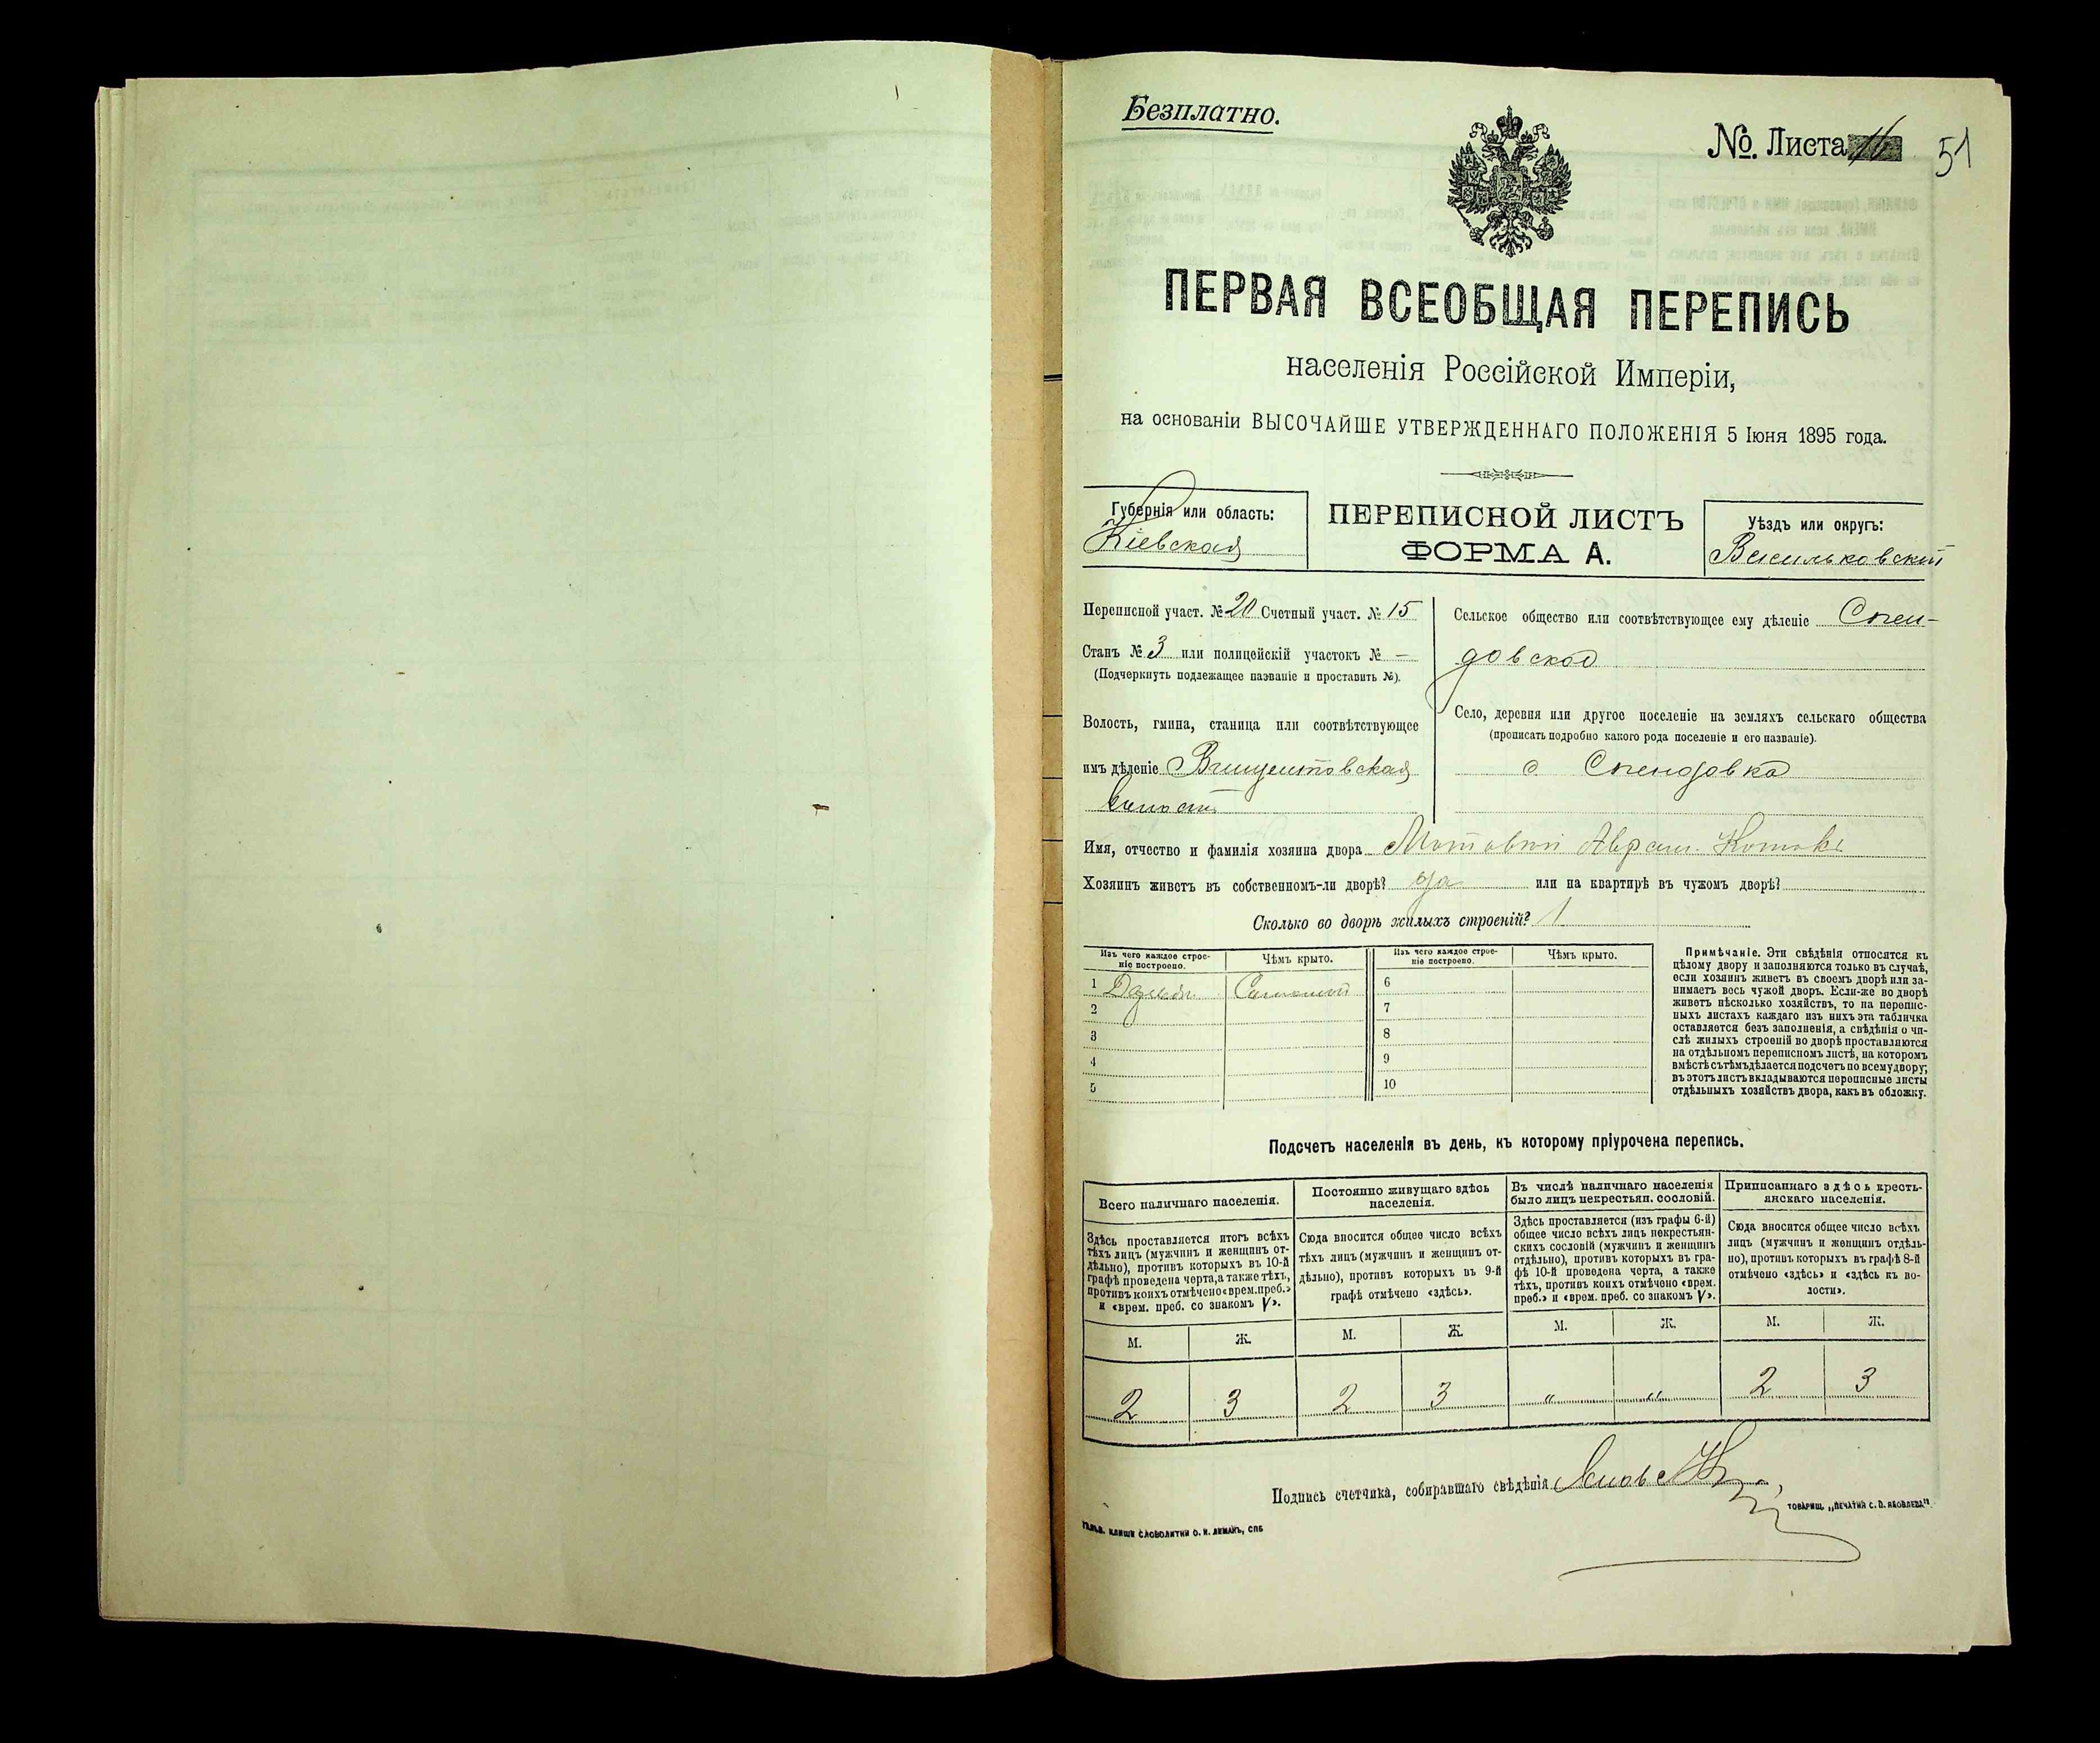 Безплатно.
№. Листа 16 51
ПЕРВАЯ ВСЕОБЩАЯ ПЕРЕПИСЬ
населенія Россійской Имперіи,
на основаніи ВЫСОЧАЙШЕ УТВЕРЖДЕННАГО ПОЛОЖЕНІЯ 5 Іюня 1895 года.
Губернія или область:
Кіевская
ПЕРЕПИСНОЙ ЛИСТЪ
ФОРМА А.
Уѣздъ или округъ:
Васильковскій
Переписной участ. № 20 Счетный участ. № 15
Станъ № 3 или полицейскій участокъ № —
(Подчеркнуть подлежащее названіе и проставить №).
Волость, гмина, станица или соотвѣтствующее
имъ дѣленіе Винцентовская
волость
Сельское общество или соотвѣтствующее ему дѣленіе Спен-
довское
Село, деревня или другое поселеніе на земляхъ сельскаго общества
(прописать подробно какого рода поселеніе и его названіе).
с. Спендовка
Имя, отчество и фамилія хозяина двора Аврам.
Хозяинъ живетъ въ собственномъ-ли дворѣ? да или на квартирѣ въ чужомъ дворѣ?
Сколько во дворѣ жилыхъ строеній? 1
Изъ чего каждое строе-
ніе построено.
Чѣмъ крыто.
Изъ чего каждое строе-
ніе построено.
Чѣмъ крыто.
1 Соломой
2
3
4
5
6
7
8
9
10
Примѣчаніе. Эти свѣдѣнія относятся къ
цѣлому двору и заполняются только въ случаѣ,
если хозяинъ живетъ въ своемъ дворѣ или за-
нимаетъ весь чужой дворъ. Если-же во дворѣ
живетъ нѣсколько хозяйствъ, то на перепис-
ныхъ листахъ каждаго изъ нихъ эта табличка
оставляется безъ заполненія, а свѣдѣнія о чи-
слѣ жилыхъ строеній во дворѣ проставляются
на отдѣльномъ переписномъ листѣ, на которомъ
вмѣстѣ съ тѣмъ дѣлается подсчетъ по всему двору;
въ этотъ листъ вкладываются переписные листы
отдѣльныхъ хозяйствъ двора, какъ въ обложку.
Подсчетъ населенія въ день, къ которому пріурочена перепись.
Всего наличнаго населенія.
Здѣсь проставляется итогъ всѣхъ
тѣхъ лицъ (мужчинъ и женщинъ от-
дѣльно), противъ которыхъ въ 10-й
графѣ проведена черта, а также тѣхъ,
противъ коихъ отмѣчено «врем. преб.»
и «врем. преб. со знакомъ V».
М. Ж.
2 3
Постоянно живущаго здѣсь
населенія.
Сюда вносится общее число всѣхъ
тѣхъ лицъ (мужчинъ и женщинъ от-
дѣльно), противъ которыхъ въ 9-й
графѣ отмѣчено «здѣсь».
М. Ж.
2 3
Въ числѣ наличнаго населенія
было лицъ некрестьян. сословій.
Здѣсь проставляется (изъ графы 6-й)
общее число всѣхъ лицъ некрестьян-
скихъ сословій (мужчинъ и женщинъ
отдѣльно), противъ которыхъ въ гра-
фѣ 10-й проведена черта, а также
тѣхъ, противъ коихъ отмѣчено «врем.
преб.» и «врем. преб. со знакомъ V».
М. Ж.
" "
Приписаннаго здѣсь кресть-
янскаго населенія.
Сюда вносится общее число всѣхъ
лицъ (мужчинъ и женщинъ отдѣль-
но), противъ которыхъ въ графѣ 8-й
отмѣчено «здѣсь» и «здѣсь къ во-
лости».
М. Ж.
2 3
Подпись счетчика, собиравшаго свѣдѣнія
ТОВАРИЩ. „ПЕЧАТНЯ С. П. ЯКОВЛЕВА".
ГАЛЬВ. КЛИШЕ СЛОВОЛИТНИ О. И. ЛЕМАНЪ, СПБ